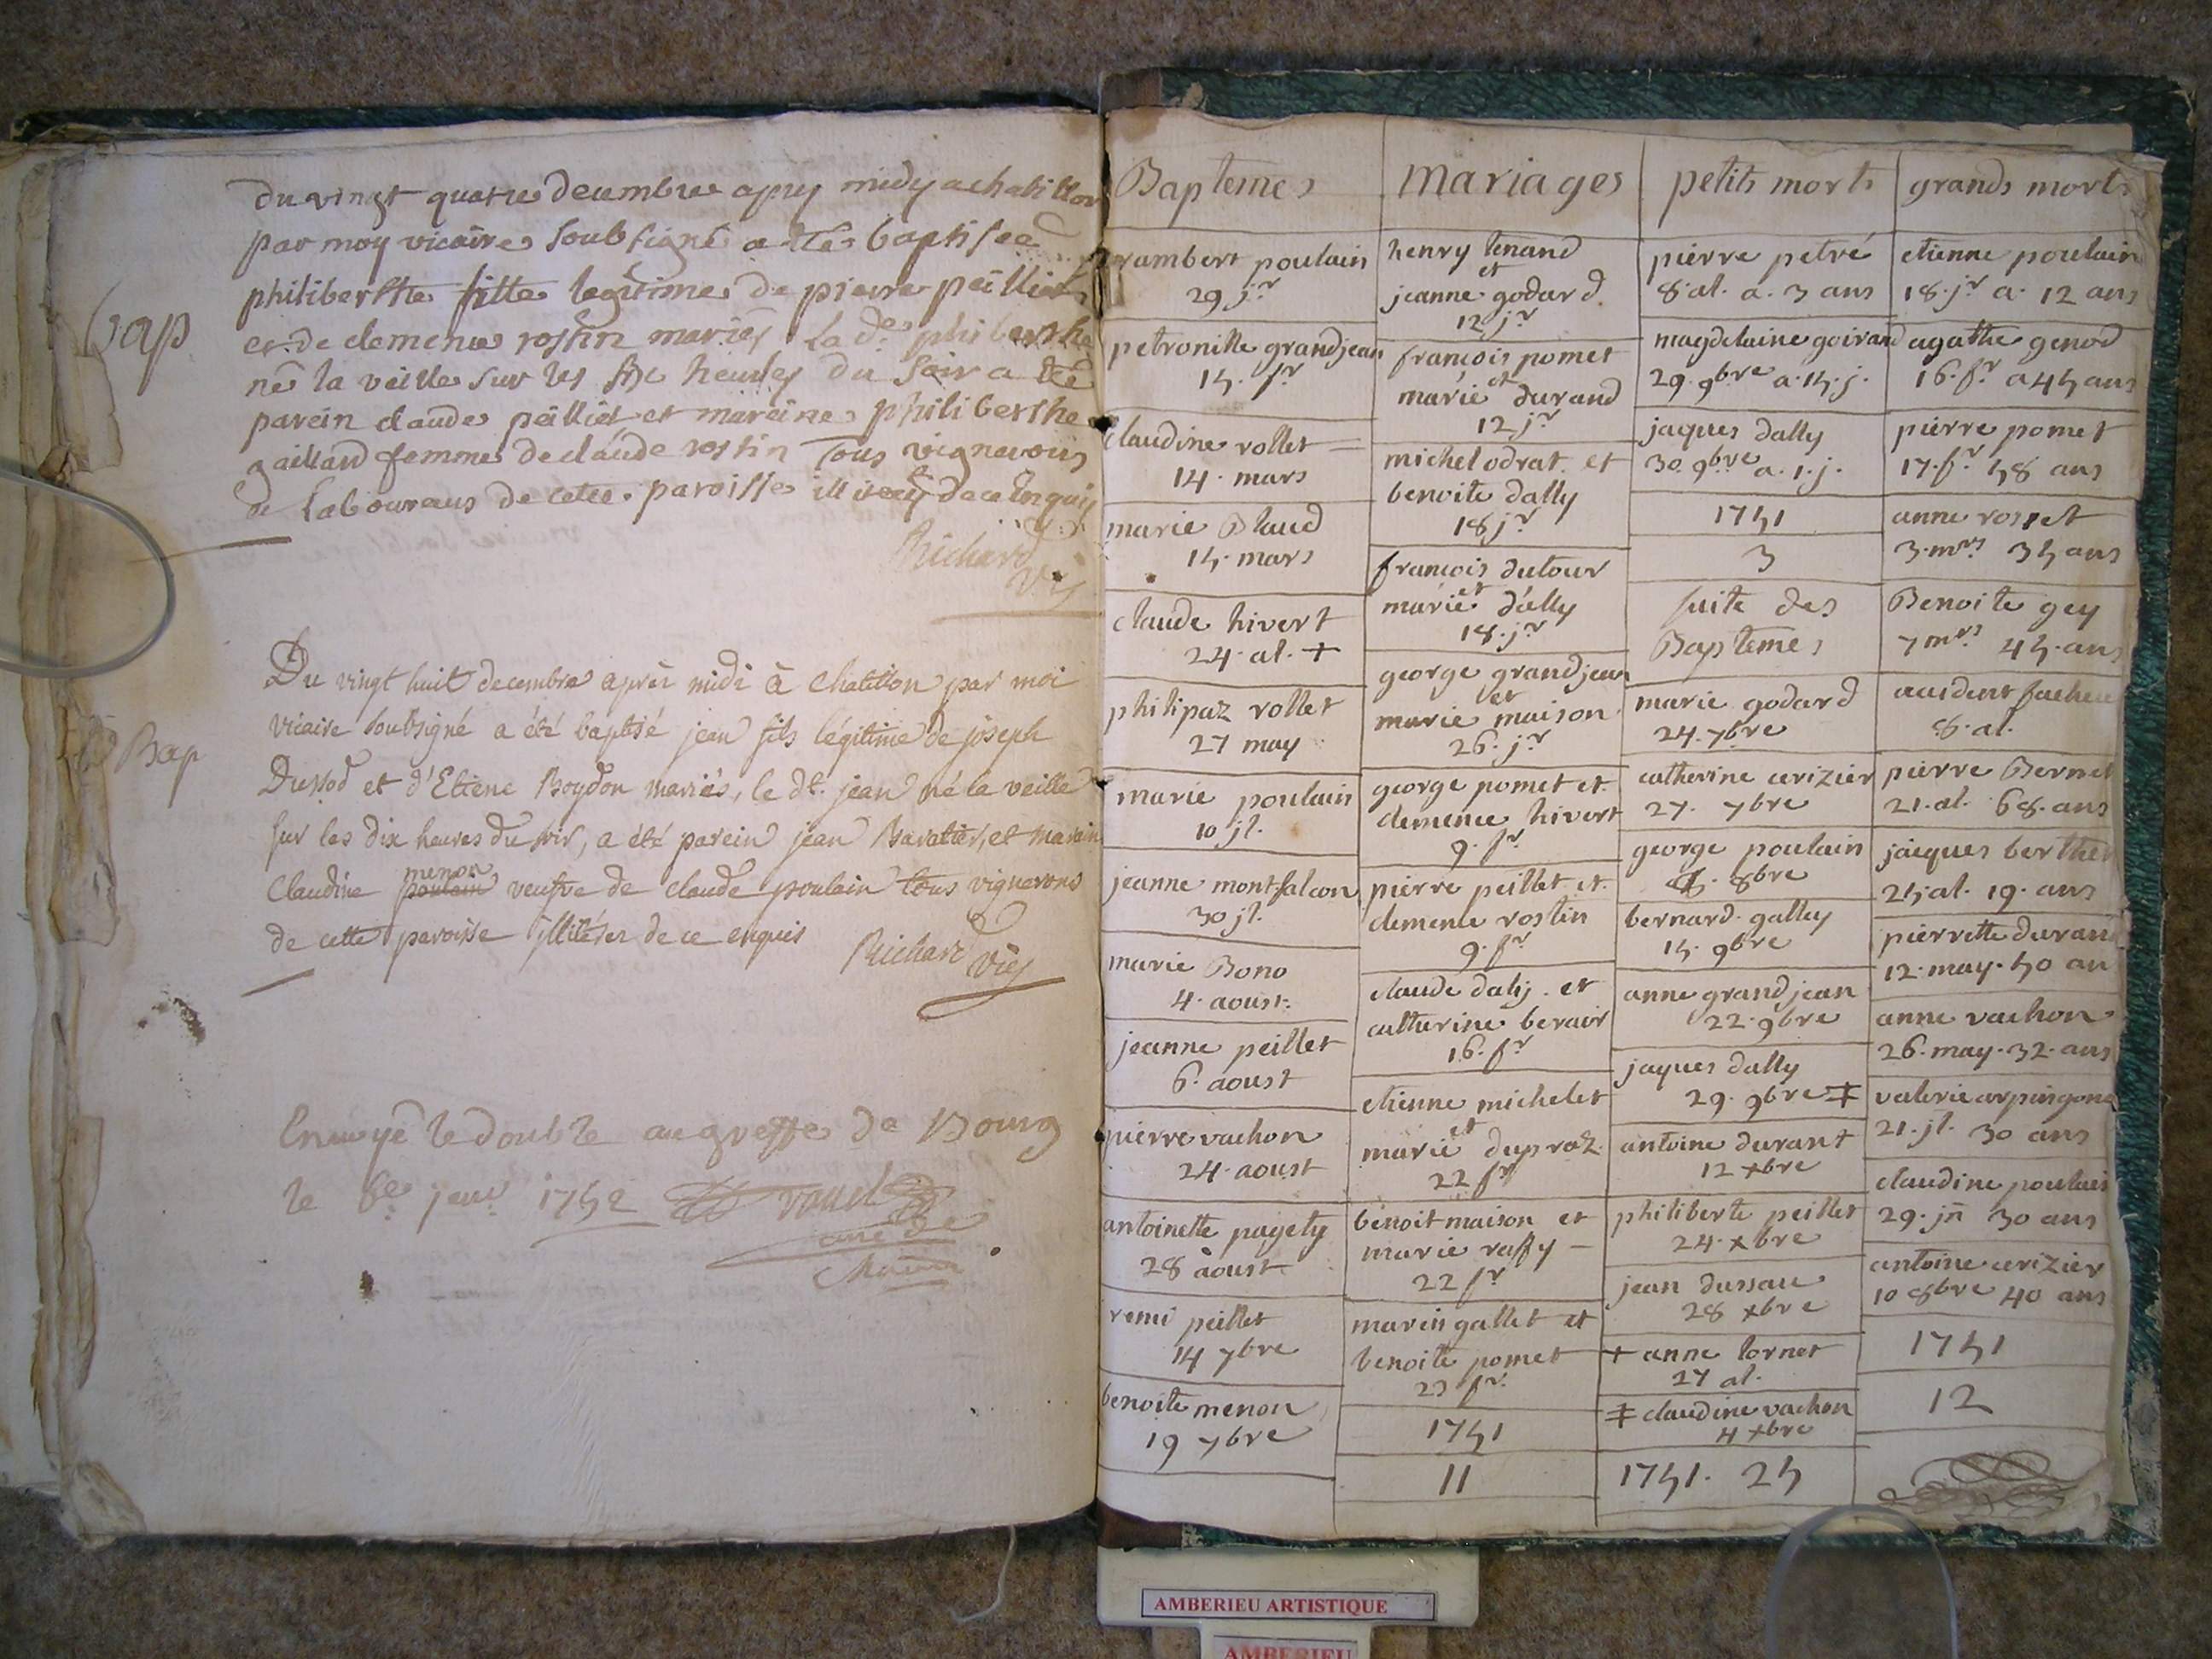 du vingt quatre decembre apres midy a chatillon
par moy vicaire soubsigné a eté baptisée
philiberthe fille legitime de pierre peillet
Bap
et de clemence rostin mariés la de philiberthe
né la veille sur les six heures du soir a été
parein claude peillet et mareine philiberthe
gaillard femme de claude rostin tous vignerons
et laboureurs de cette paroisse illiterés de ce enquis
Richard
vic
Du vingt huit decembre après midi à chatillon par moi
vicaire soubsigné a été baptisé jean fils légitime de joseph
Bap
Dussod et d'Etiene Boydon mariés, le dt. jean né la veille
sur les dix heures du soir, a été parein jean Baratier, et marein
menon
Claudine poulain veufve de claude poulain tous vignerons
de cette paroisse illitérés de ce enquis
Richard vic
Envoyé le double au greffe de Bourg
le 8e janr 1752
curé de
Baptemes
rambert poulain
29 jr
petronille grandjean
15. fr
claudine rollet
14. mars
marie Blaud
15. mars
claude hivert
24. al. +
philipaz rollet
27 may
marie poulain
10 jl.
jeanne montfalcon
30 jl.
marie Bono
4. aoust.
jeanne peillet
6. aoust
pierre vachon
24. aoust
antoinette pagety
28 aoust
remi peillet
14 7bre
benoite menon
19 7bre
mariages
henry tenand
et
jeanne godard
12 jr
francois pomet
et
marie durand
12 jr
michel odrat et
benoite dally
18 jr
francois dutour
et
marie dally
18. jr
george grandjean
et
marie maison
26. jr
george pomet et
clemence hivert
9. fr
pierre peillet et
clemence rostin
9. fr
claude dally. et
catherine berair
16. fr
etienne michelet
et
marie dupraz
22 fr
benoit maison et
marie raffy
22 fr
marin gallet et
benoite pomet
23 fr
1751
11
petits morts
pierre petré
8. al. a. 3 ans
magdelaine goirand
29. 9bre a. 15. j.
jaques dally
30. 9bre a. 1. j.
1751
3
suite des
Baptemes
marie godard
24. 7bre
catherine cerizier
27. 7bre
george poulain
5. 8bre
bernard. galley
15. 9bre
anne grandjean
22. 9bre
jaques dally
29. 9bre ‡
antoine durant
12 xbre
philiberte peillet
24. xbre
jean dussau
28 xbre
+ anne tornet
27 al.
‡ claudine vachon
4 xbre
1751. 25
grands morts
etienne poulain
18. jr a. 12 ans
agathe genod
16. fr a 45 ans
pierre pomet
17. fr. 58 ans
anne rosset
3. mrs 35 ans
Benoite gey
7 mrs 45. ans
accident facheu
8. al.
pierre Bernet
21. al. 68. ans
jacques berthet
25. al. 19. ans
pierrette durand
12. may. 50 an
anne vachon
26. may. 32. ans
valerie arpingone
21. jl. 30 ans
claudine poulain
29. jn 30 ans
antoine cerizier
10 8bre 40 ans
1751
12
AMBERIEU ARTISTIQUE
AMBERIEU